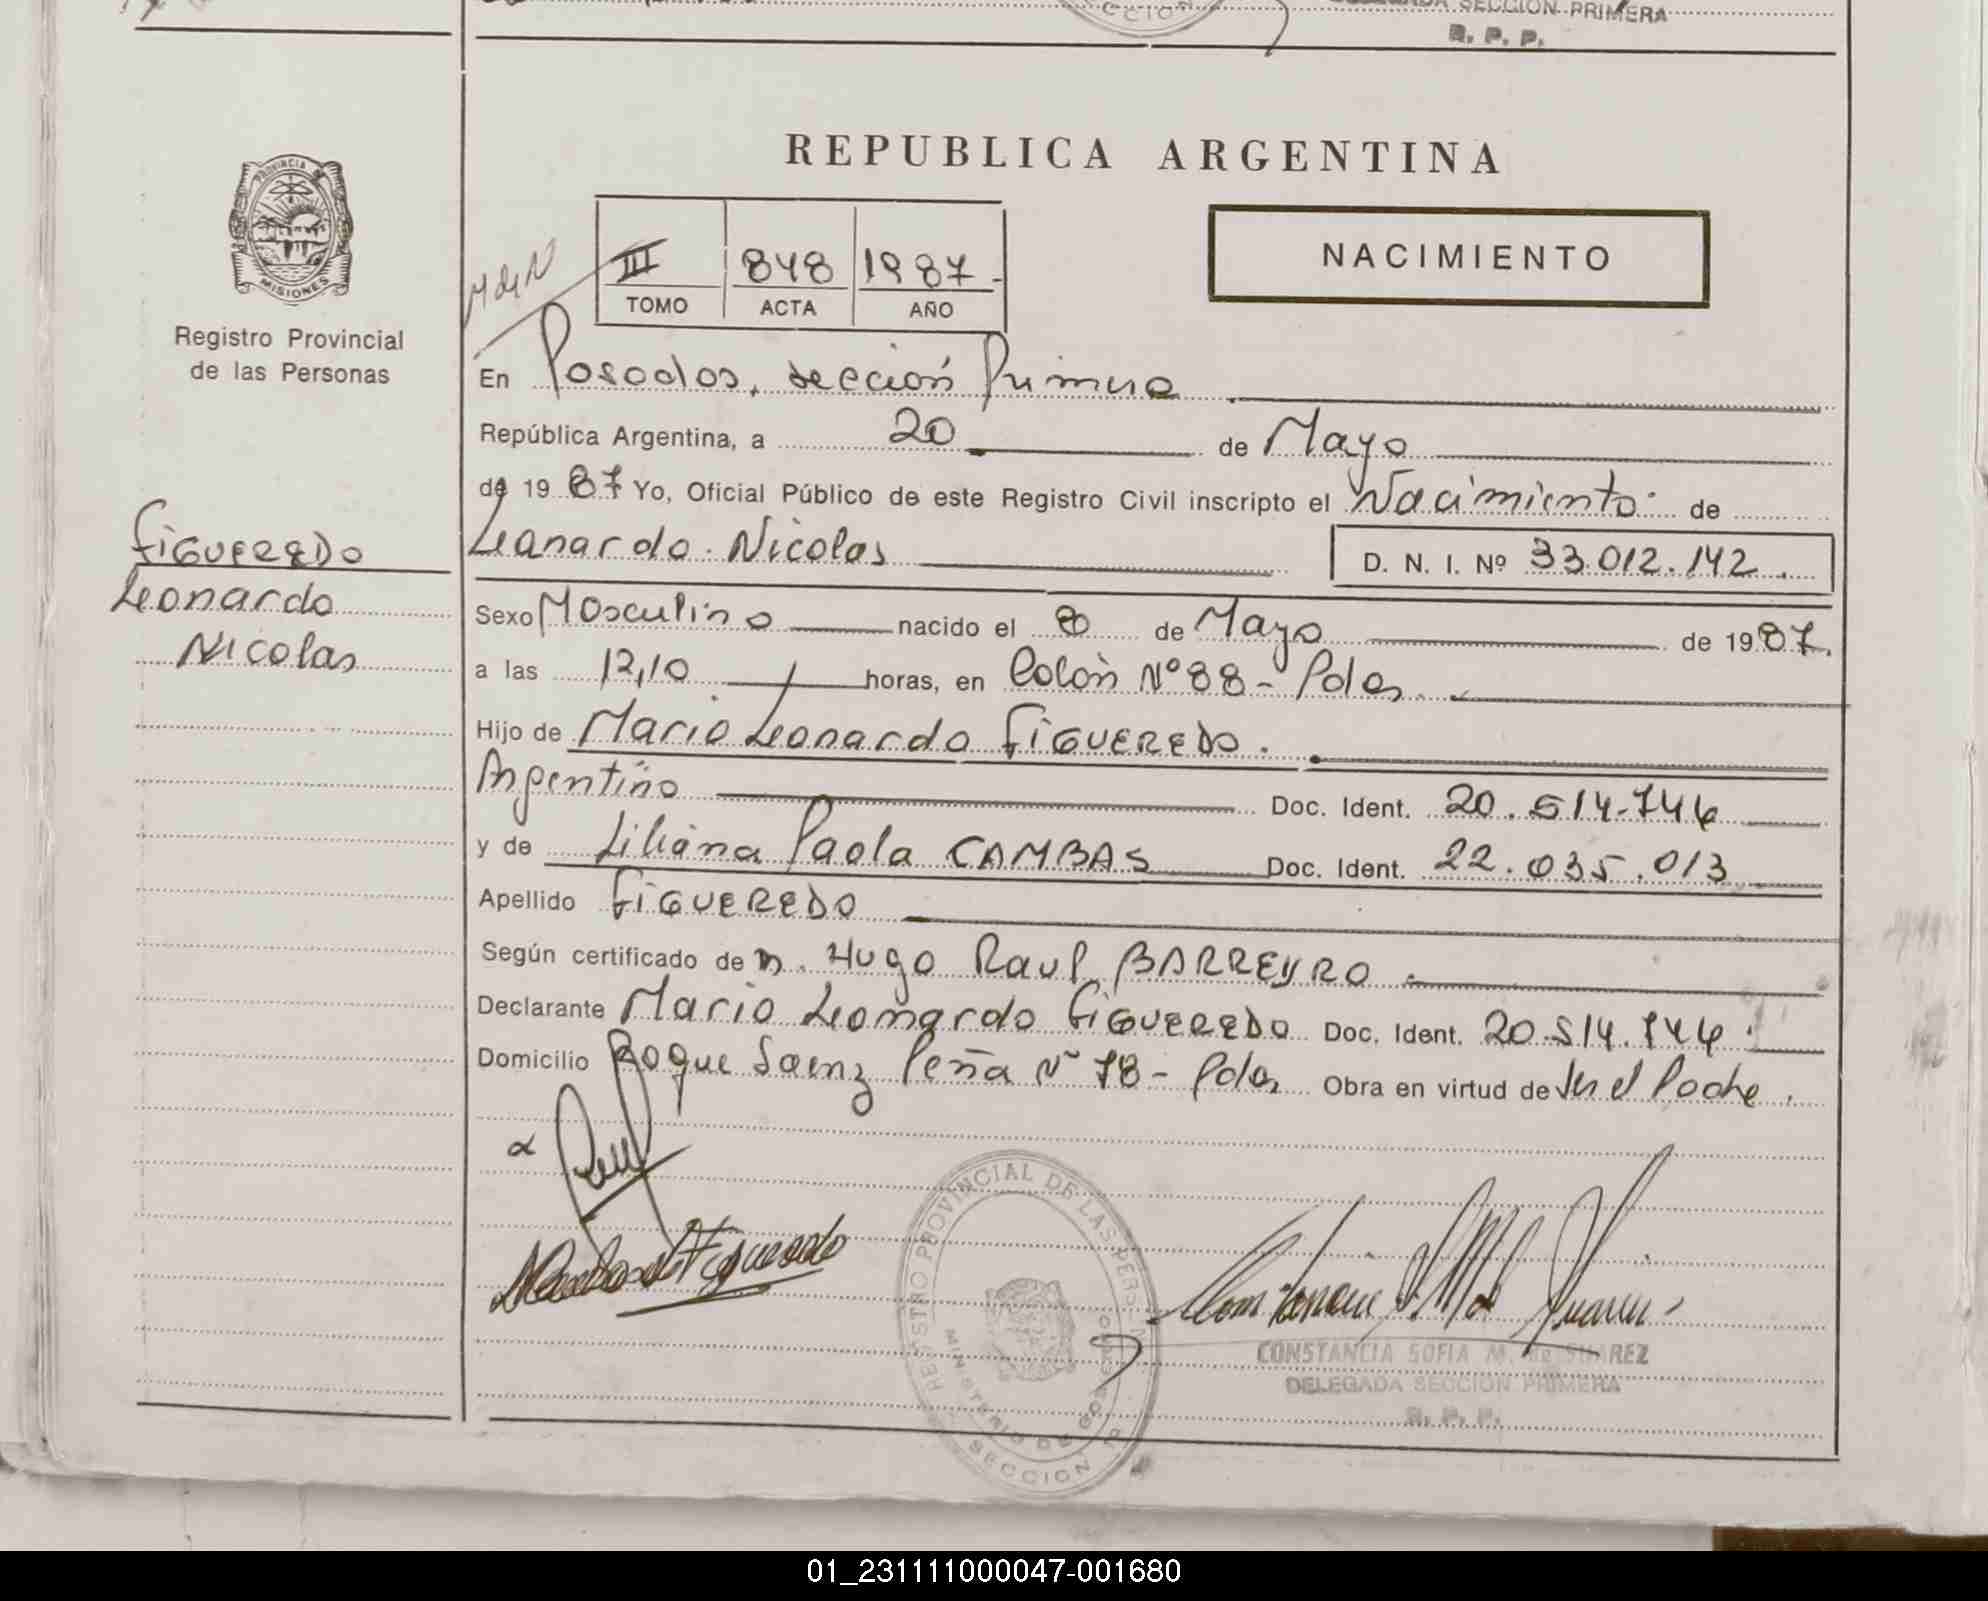 DELEGADA SECCION PRIMERA
R. P. P.
REPUBLICA ARGENTINA
PROVINCIA
MISIONES
Registro Provincial
de las Personas
FIGUEREDO
Leonardo
Nicolas
M de N
III 848 1987
TOMO ACTA AÑO
NACIMIENTO
En Posadas, sección Primera
República Argentina, a 20 de Mayo
de 1987 Yo, Oficial Público de este Registro Civil inscripto el Nacimiento de
Leonardo Nicolas D. N. I. Nº 33.012.142
Sexo Masculino nacido el 8 de Mayo de 1987.
a las 12,10 horas, en Colón Nº 88 - Pdas.
Hijo de Mario Leonardo FIGUEREDO.
Argentino Doc. Ident. 20.514.746
y de Liliana Paola CAMBAS Doc. Ident. 22.035.013
Apellido FIGUEREDO
Según certificado de m. Hugo Raul BARREYRO.
Declarante Mario Leonardo FIGUEREDO Doc. Ident. 20.514.746.
Domicilio Roque Saenz Peña Nº 78 - Pdas Obra en virtud de ser el Padre.
REGISTRO PROVINCIAL DE LAS PERS
MINISTERIO DE GOBIERNO
SECCION
CONSTANCIA SOFIA M. de SUAREZ
DELEGADA SECCION PRIMERA
R. P. P.
01_231111000047-001680